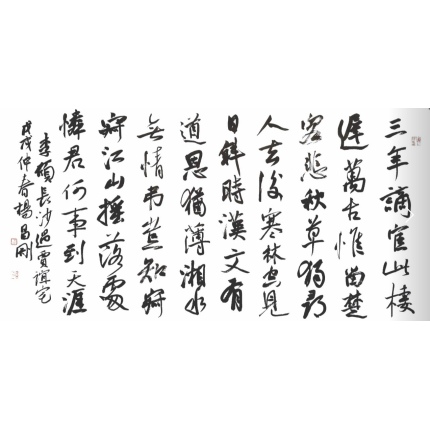 三年謫宦此棲
遲萬古惟留楚
客悲秋草獨尋
人去後寒林空見
日斜時漢文有
道恩猶薄湘水
無情弔豈知寂
寂江山搖落處
憐君何事到天涯
李頎長沙過賈誼宅
戊戌仲春楊昌剛